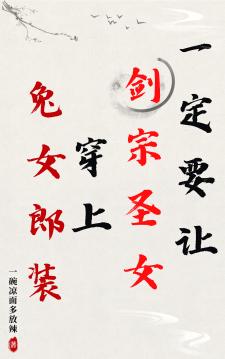 一定要让
剑宗圣女
穿上
兔女郎装
一碗凉面多放辣
著